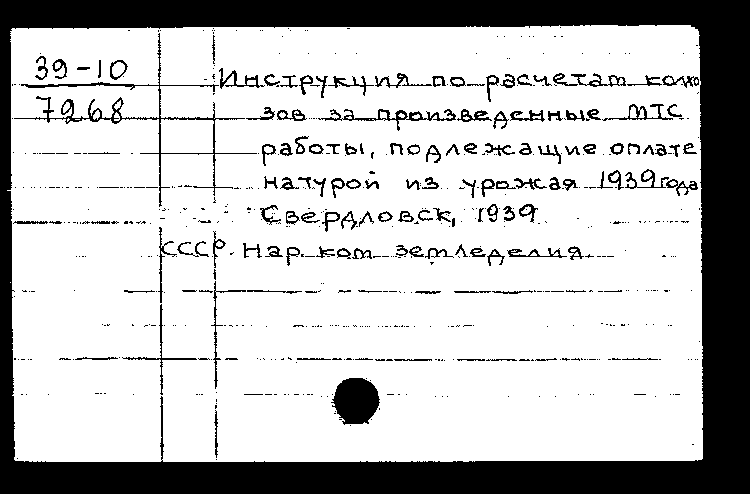 39-10
7268
Инструкция по расчетам колхо
зов за произведенные МТС
работы, подлежащие оплате
натурой из урожая 1939 года
Свердловск, 1939
СССР. Нар. ком. земледелия.